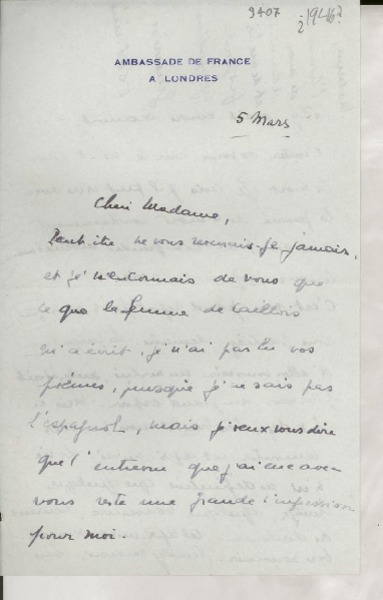 9407
1946?
AMBASSADE DE FRANCE
A LONDRES
5 Mars
Chère Madame,
Peut être ne vous reverrais-je jamais,
et je ne connais de vous que
ce que la femme de Caillois
m'a écrit. je n'ai pas lu vos
poèmes, puisque je ne sais pas
l'espagnol, mais je veux vous dire
que l'entrevue que j'ai eue avec
vous reste une grande impression
pour moi.